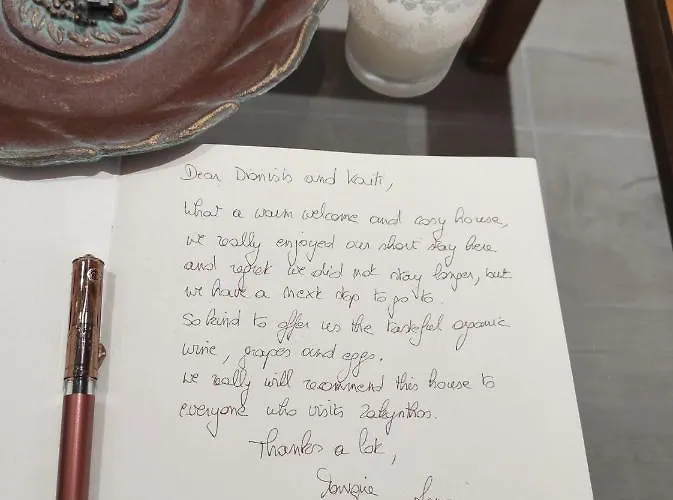 Dear Dionisis and Kaiti,
What a warm welcome and cosy house,
we really enjoyed our short stay here
and regret we did not stay longer, but
we have a next stop to go to.
So kind to offer us the tasteful organic
wine, grapes and eggs.
we really will recommend this house to
everyone who visits Zakynthos.
Thanks a lot,